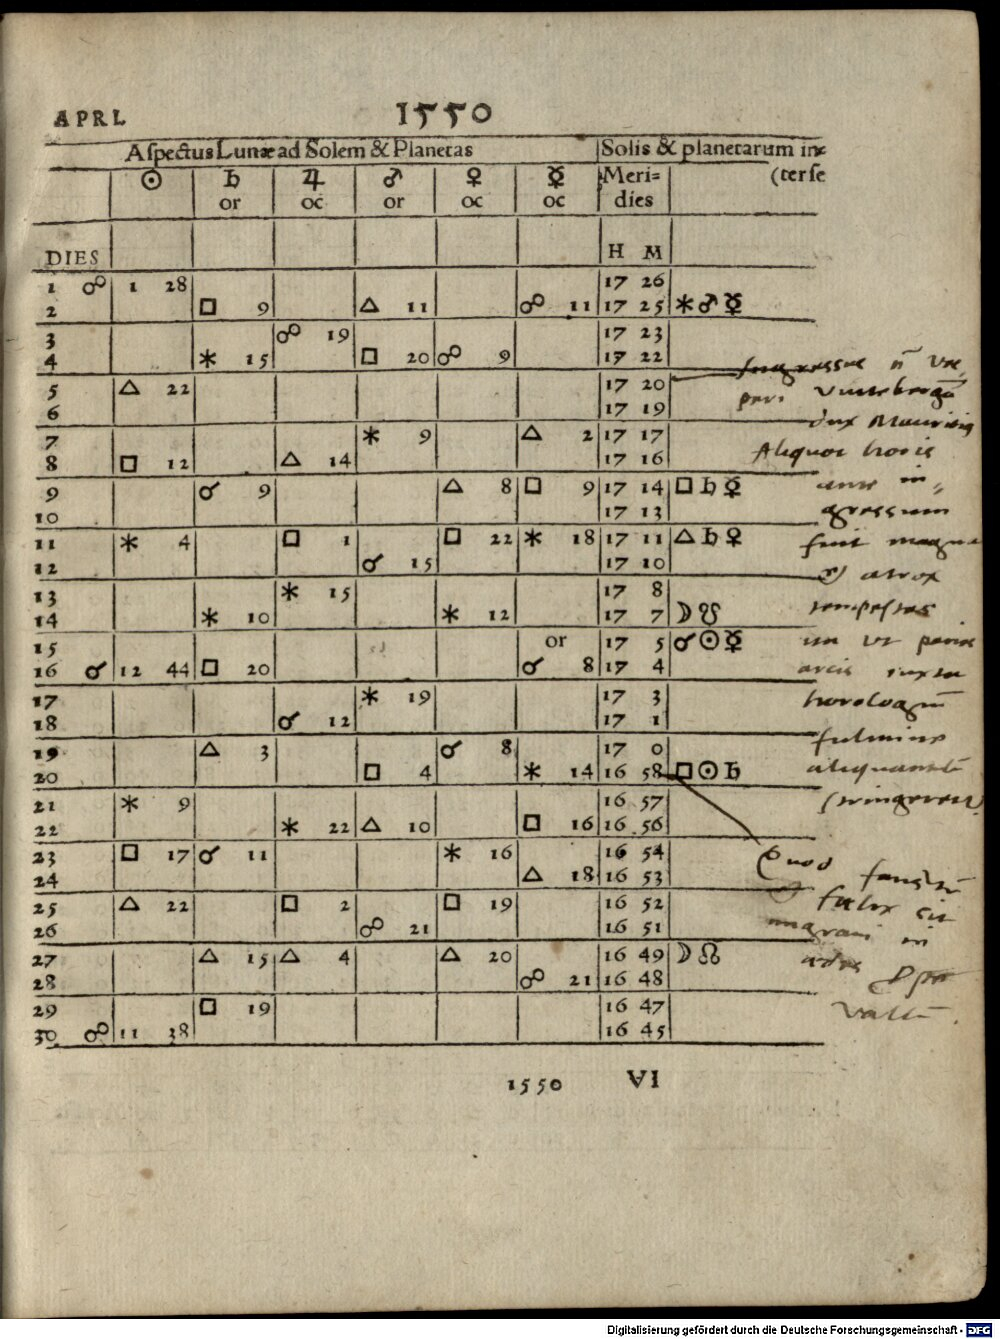 APRL 1550
Aspectus Lunæ ad Solem & Planetas Solis & planetarum in=
☉ ♄ ♃ ♂ ♀ ☿ Meri= (terse
or oc or oc oc dies
DIES H M
1 ☍ 1 28 17 26
2 □ 9 △ 11 ☍ 11 17 25 ⚹ ♂ ☿
3 ☍ 19 17 23
4 ⚹ 15 □ 20 ☍ 9 17 22
5 △ 22 17 20
6 17 19
7 ⚹ 9 △ 2 17 17
8 □ 12 △ 14 17 16
9 ☌ 9 △ 8 □ 9 17 14 □ ♄ ☿
10 17 13
11 ⚹ 4 □ 1 □ 22 ⚹ 18 17 11 △ ♄ ♀
12 ☌ 15 17 10
13 ⚹ 15 17 8
14 ⚹ 10 ⚹ 12 17 7 ☽ ☋
15 or 17 5 ☌ ☉ ☿
16 ☌ 12 44 □ 20 ☌ 8 17 4
17 ⚹ 19 17 3
18 ☌ 12 17 1
19 △ 3 ☌ 8 17 0
20 □ 4 ⚹ 14 16 58 □ ☉ ♄
21 ⚹ 9 16 57
22 ⚹ 22 △ 10 □ 16 16 56
23 □ 17 ☌ 11 ⚹ 16 16 54
24 △ 18 16 53
25 △ 22 □ 2 □ 19 16 52
26 ☍ 21 16 51
27 △ 15 △ 4 △ 20 16 49 ☽ ☊
28 ☍ 21 16 48
29 □ 19 16 47
30 ☍ 11 38 16 45
Ingressus
dux Mauritius
Aliquot horis
ante in=
gressum
fuit magna
atrox
tempestas
horologium
fulmine
Quod
felix sit
in
1550 VI
Digitalisierung gefördert durch die Deutsche Forschungsgemeinschaft - DFG